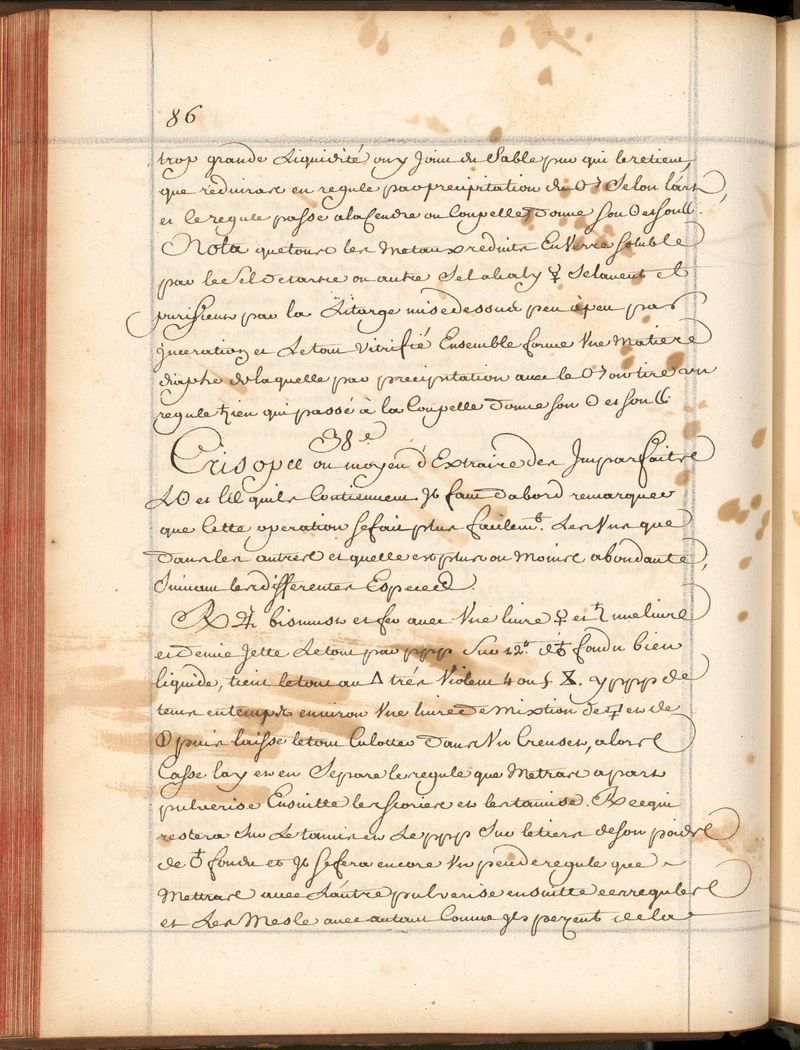 86
trop grande Liquidité on y Joint du Sable pur qui le retient,
que reduiras en regule par precipitation du ♂ Selon l'art,
et le regule passe a la Cendre ou Coupelle, Donne son ☉ et son ☾.
Nota que tous les Metaux reduits En Verre soluble
par le Sel de tartre ou autre Sel alcaly ☿ Se lavent et
purifient par la Litarge mise dessus peu à peu par
Inceration et Le tout Vitrifié Ensemble forme Vne Matiere
diaphe de laquelle par precipitation avec le ♂ on tire un
regule ♄ien qui passé à la Coupelle Donne son ☉ et son ☾.
38e
Crisopee ou moyen d'Extraire des Imparfaits
L☉ et l☾ quils Contiennent Jl faut D'abord remarquer
que Cette operation se fait plus facilemt. Les Vns que
Dans les autres et quelle est plus ou Moins abondante,
Suivant les differentes Especes.
♃ bismuth et fer avec Vne livre ♀ et ♄ une livre
et Demie Jette Le tout par ppp Sur 12 ♁ fondu bien
liquide, tient le tout au △ trés Violent 4 ou 5 ⧖. y ppp de
tems en temps environ Vne livre de Mixtion de et de
puis laisse le tout Culotter Dans Vn Creuset, alors
Casse lay et en Separe le regule que Mettras apart
pulverise Ensuitte les scories et les tamise. ce qui
restera Sur Le tamis et Le ppp Sur le tiers de son poids
de ♁ fondu et Jl se fera encore Vn peu de regule que
Mettras avec L'autre pulverise ensuitte ces regules
et Les Mesle avec autant Comme Jls pezent de la